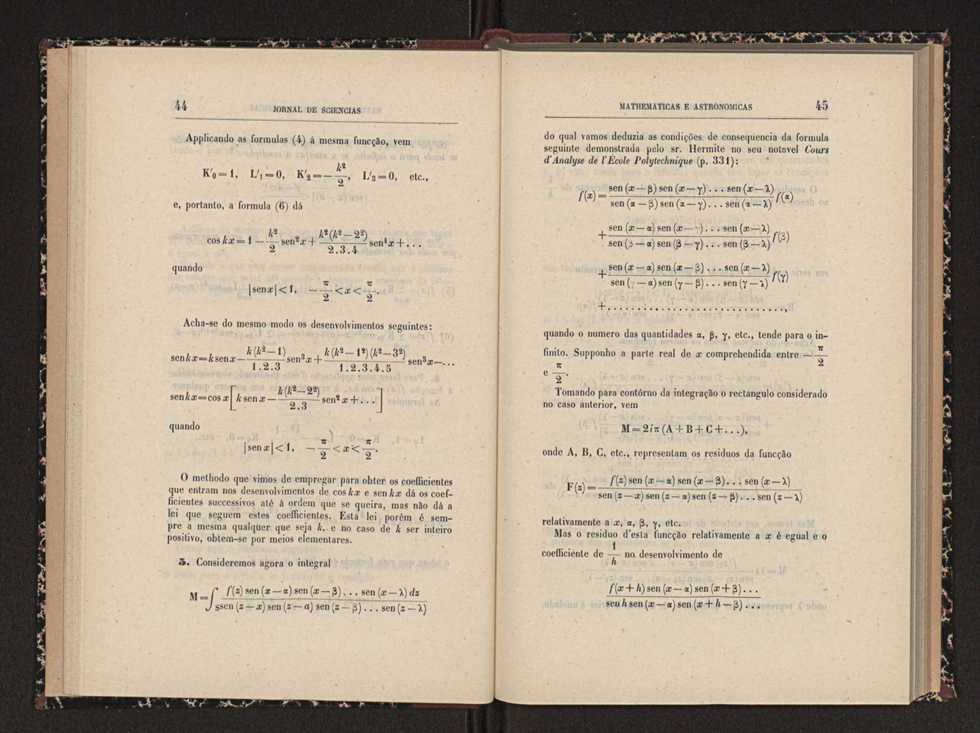 44
JORNAL DE SCIENCIAS
Applicando as formulas (4) á mesma funcção, vem
K'₀ = 1, L'₁ = 0, K'₂ = − k²/2, L'₃ = 0, etc.,
e, portanto, a formula (6) dá
cos kx = 1 − k²/2 sen² x + k²(k²−2²)/2.3.4 sen⁴ x + ...
quando
|sen x| < 1, − π/2 < x < π/2.
Acha-se do mesmo modo os desenvolvimentos seguintes:
sen kx = k sen x − k(k²−1)/1.2.3 sen³ x + k(k²−1²)(k²−3²)/1.2.3.4.5 sen⁵ x − ...
sen kx = cos x [k sen x − k(k²−2²)/2.3 sen³ x + ...]
quando
|sen x| < 1, − π/2 < x < π/2.
O methodo que vimos de empregar para obter os coefficientes
que entram nos desenvolvimentos de cos kx e sen kx dá os coef-
ficientes successivos até á ordem que se queira, mas não dá a
lei que seguem estes coefficientes. Esta lei porém é sem-
pre a mesma qualquer que seja k, e no caso de k ser inteiro
positivo, obtem-se por meios elementares.
5. Consideremos agora o integral
M = ∫s f(z) sen (x − α) sen (x − β) ... sen (x − λ) dz / sen (z − x) sen (z − α) sen (z − β) ... sen (z − λ)
MATHEMATICAS E ASTRONOMICAS
45
do qual vamos deduzia as condições de consequencia da formula
seguinte demonstrada pelo sr. Hermite no seu notavel Cours
d'Analyse de l'École Polytechnique (p. 331):
f(x) = sen (x − β) sen (x − γ) ... sen (x − λ) / sen (α − β) sen (α − γ) ... sen (α − λ) f(α)
+ sen (x − α) sen (x − γ) ... sen (x − λ) / sen (β − α) sen (β − γ) ... sen (β − λ) f(β)
+ sen (x − α) sen (x − β) ... sen (x − λ) / sen (γ − α) sen (γ − β) ... sen (γ − λ) f(γ)
+ ..............................,
quando o numero das quantidades α, β, γ, etc., tende para o in-
finito. Supponho a parte real de x comprehendida entre − π/2
e π/2.
Tomando para contórno da integração o rectangulo considerado
no caso anterior, vem
M = 2iπ (A + B + C + ...),
onde A, B, C, etc., representam os residuos da funcção
F(z) = f(z) sen (x − α) sen (x − β) ... sen (x − λ) / sen (z − x) sen (z − α) sen (z − β) ... sen (z − λ)
relativamente a x, α, β, γ, etc.
Mas o residuo d'esta funcção relativamente a x é egual e o
coefficiente de 1/h no desenvolvimento de
f(x + h) sen (x − α) sen (x + β) ... / sen h sen (x − α) sen (x + h − β) ...